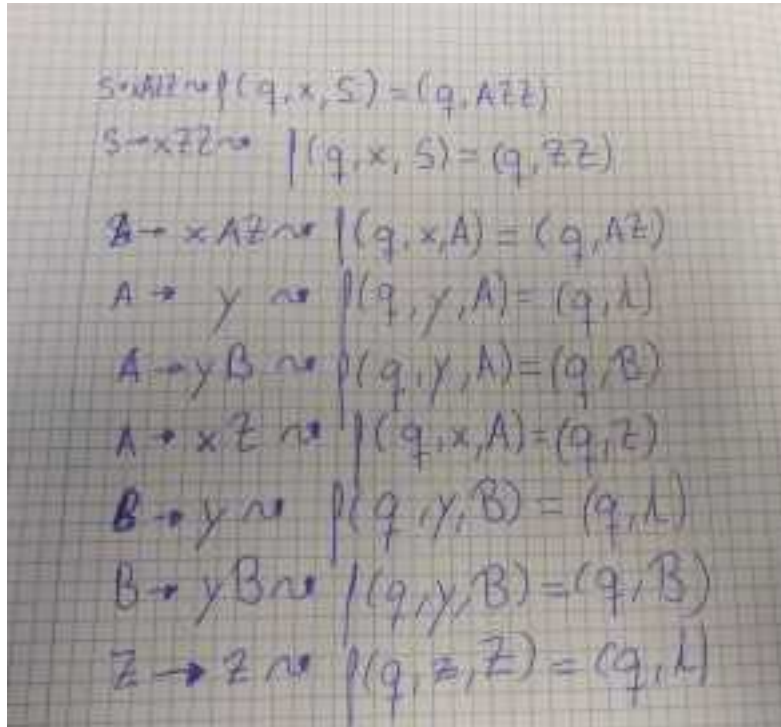 S→xAZZ ⤳ f(q,x,S)=(q,AZZ)
S→xZZ ⤳ f(q,x,S)=(q,ZZ)
A→xAZ ⤳ f(q,x,A)=(q,AZ)
A→y ⤳ f(q,y,A)=(q,λ)
A→yB ⤳ f(q,y,A)=(q,B)
A→xZ ⤳ f(q,x,A)=(q,Z)
B→y ⤳ f(q,y,B)=(q,λ)
B→yB ⤳ f(q,y,B)=(q,B)
Z→z ⤳ f(q,z,Z)=(q,λ)